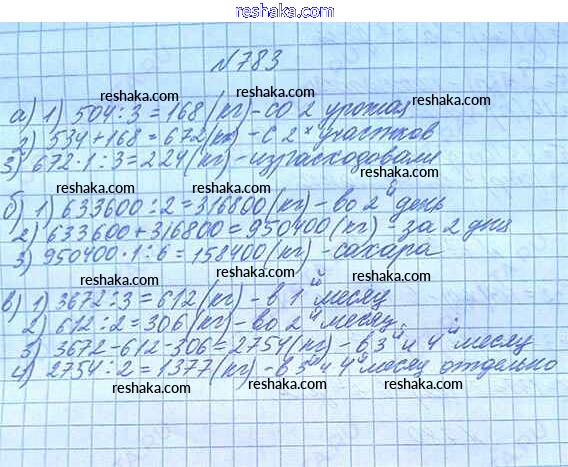 www.reshaka.com
№783
reshaka.com reshaka.com
а) 1) 504:3=168(кг)-со 2 урожая
reshaka.com
2) 534+168=672(кг)-с 2х участков
3) 672·1:3=224(кг)-израсходовали
reshaka.com reshaka.com reshaka.com
б) 1) 633600:2=316800(кг)-во 2й день
2) 633600+316800=950400(кг)-за 2 дня
3) 950400·1:6=158400(кг)-сахара
reshaka.com reshaka.com reshaka.com
в) 1) 3672:3=612(кг)-в 1й месяц
reshaka.com reshaka.com
2) 612:2=306(кг)-во 2й месяц
3) 3672-612-306=2754(кг)-в 3й и 4й месяц
4) 2754:2=1377(кг)-в 3й и 4й месяц отдельно
reshaka.com reshaka.com reshaka.com
reshaka.com reshaka.com
www.reshaka.com